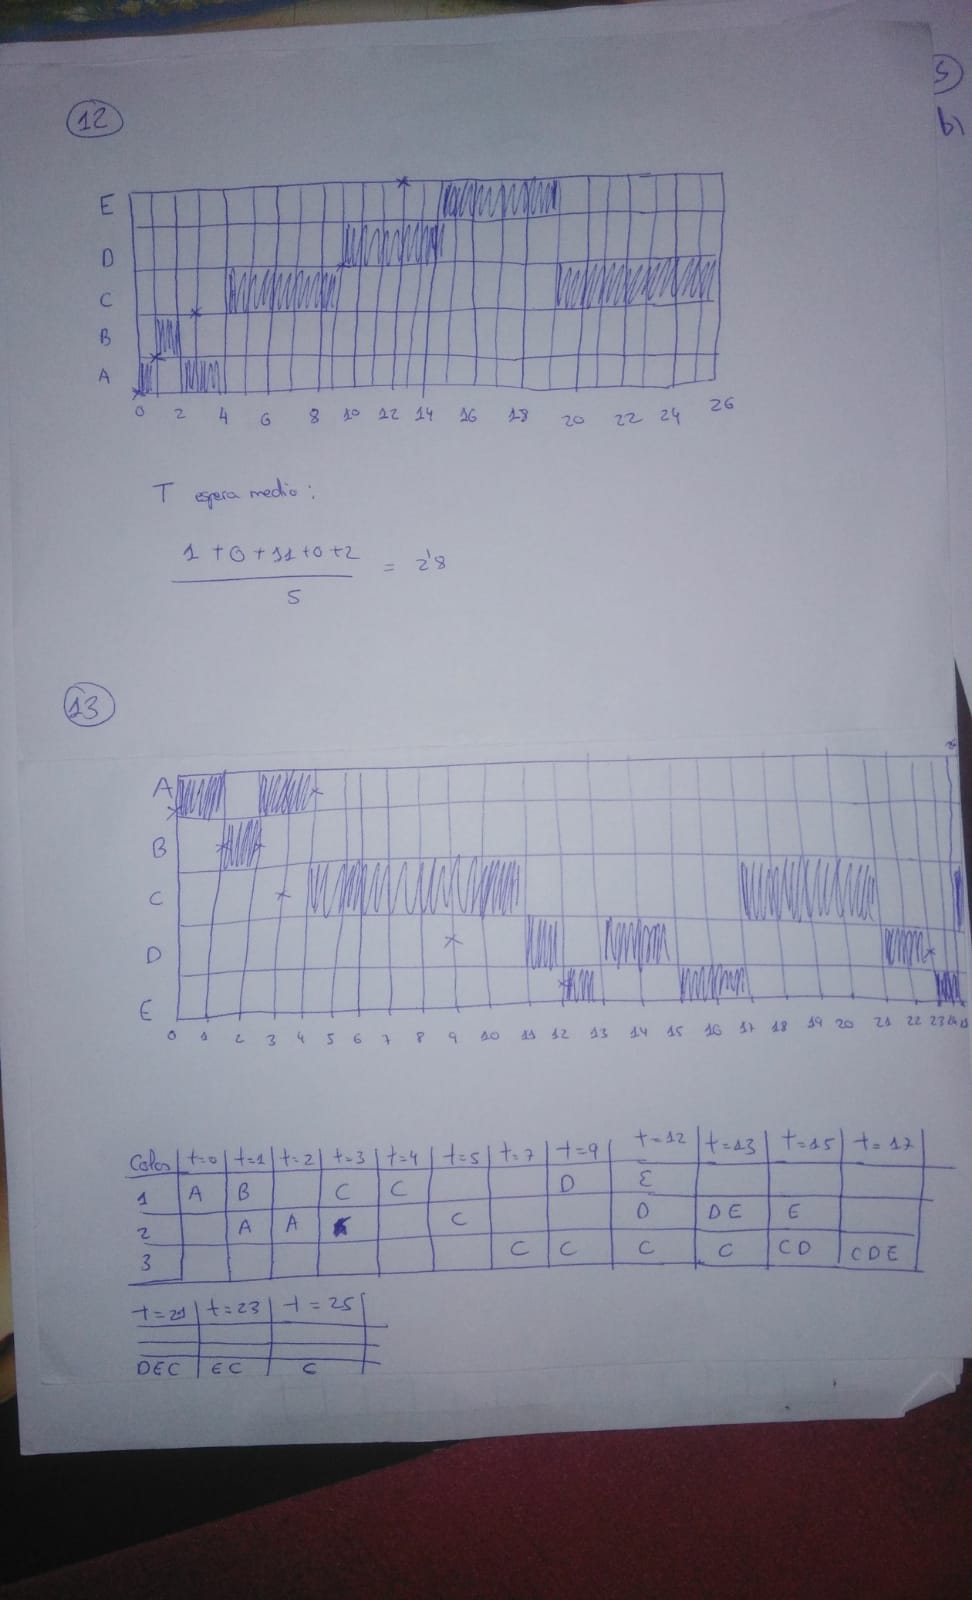 5
b)
12
E
D
C
B
A
0 2 4 6 8 10 12 14 16 18 20 22 24 26
T espera medio:
1 + 0 + 11 + 0 + 2
= 2'8
5
13
A
B
C
D
E
0 1 2 3 4 5 6 7 8 9 10 11 12 13 14 15 16 17 18 19 20 21 22 23 24 25
Colas t=0 t=1 t=2 t=3 t=4 t=5 t=7 t=9 t=12 t=13 t=15 t=17
1 A B C C D E
2 A A C D DE E
3 C C C C CD CDE
t=21 t=23 t=25
DEC EC C